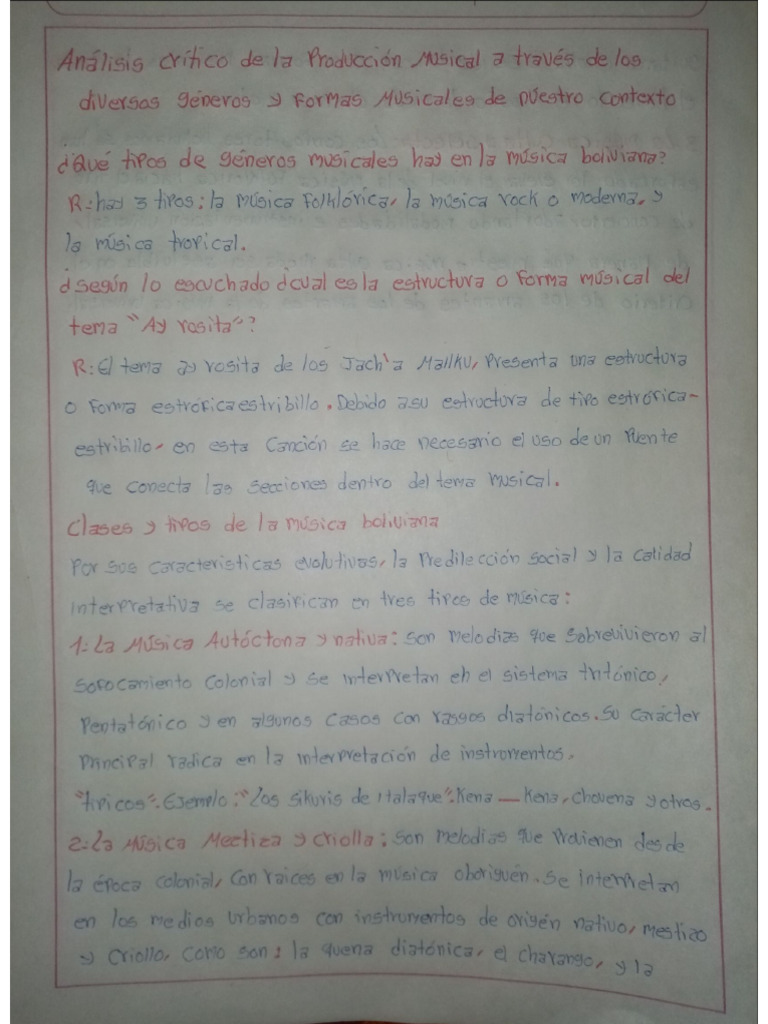 Análisis crítico de la Producción Musical a través de los
diversos géneros y formas Musicales de nuestro contexto
¿Qué tipos de géneros musicales hay en la música boliviana?
R: hay 3 tipos: la música folklórica, la música rock o moderna, y
la música tropical.
¿según lo escuchado ¿cual es la estructura o forma músical del
tema "Ay rosita"?
R: El tema ay rosita de los Jach'a Mallku, Presenta una estructura
o forma estroficaestribillo. Debido asu estructura de tipo estrófica-
estribillo, en esta Canción se hace necesario el uso de un Puente
que conecta las secciones dentro del tema musical.
Clases y tipos de la música boliviana
Por sus caracteristicas evolutivas, la Predilección social y la calidad
interpretativa se clasifican en tres tipos de música:
1: La Música Autóctona y nativa: son melodias que sobrevivieron al
sofocamiento colonial y se interpretan en el sistema tritónico,
Pentatónico y en algunos casos con rasgos diatónicos. Su carácter
Principal radica en la interpretación de instrumentos.
"tipicos". Ejemplo: "Los sikuris de Italaque". Kena — Kena, chovena y otros.
2: La Música Mectiza y criolla: son melodias que Provienen desde
la época colonial, con raices en la música oboriguén. Se interpretan
en los medios urbanos con instrumentos de origén nativo, mestizo
y criollo, como son: la quena diatónica, el charango, y la